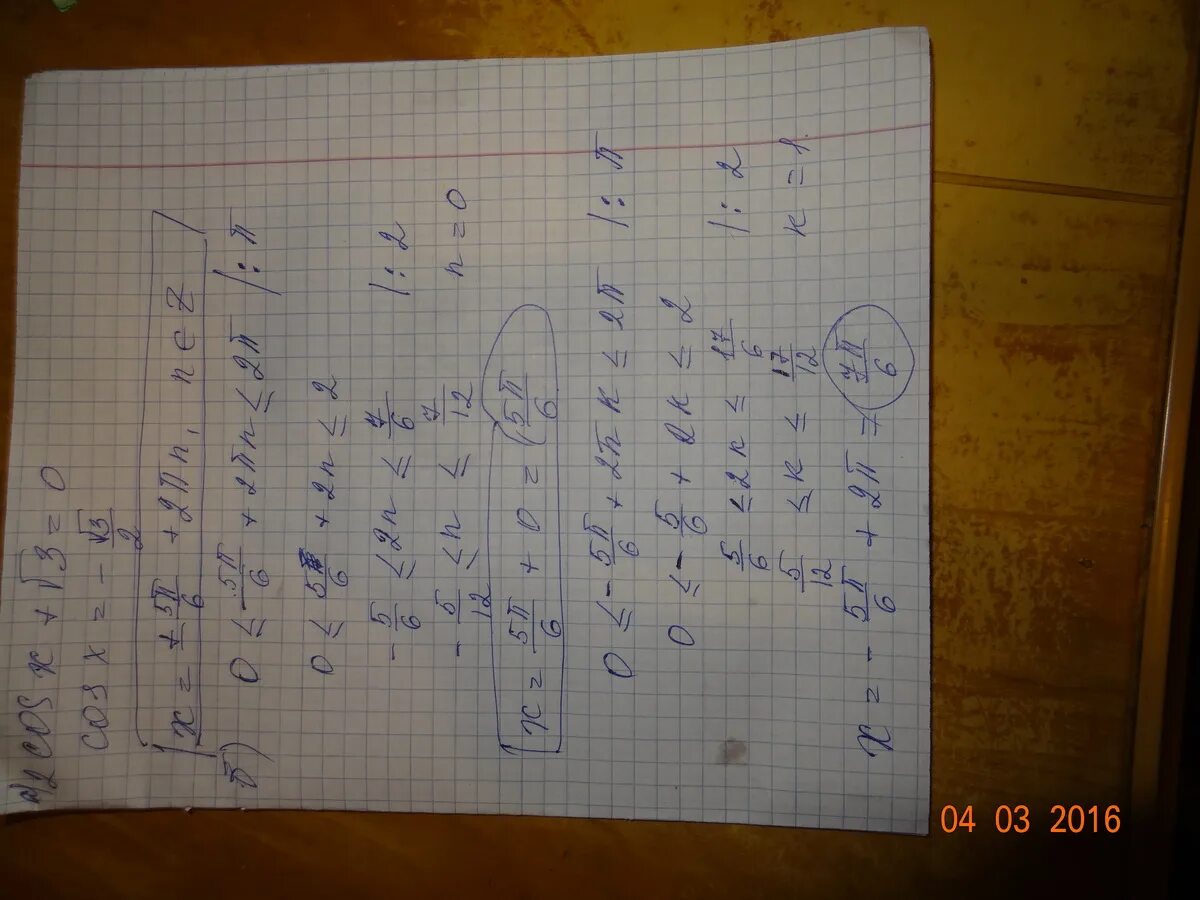 а) 2 cos x + √3 = 0
cos x = - √3/2
x = ± 5π/6 + 2πn, n ∈ Z
б) 0 ≤ - 5π/6 + 2πn ≤ 2π |: π
0 ≤ 5/6 + 2n ≤ 2
- 5/6 ≤ 2n ≤ 7/6 |: 2
- 5/12 ≤ n ≤ 7/12 n = 0
x = 5π/6 + 0 = 5π/6
0 ≤ - 5π/6 + 2πk ≤ 2π |: π
0 ≤ - 5/6 + 2k ≤ 2
5/6 ≤ 2k ≤ 17/6 |: 2
5/12 ≤ k ≤ 17/12 k = 1.
x = - 5π/6 + 2π = 7π/6
04 03 2016